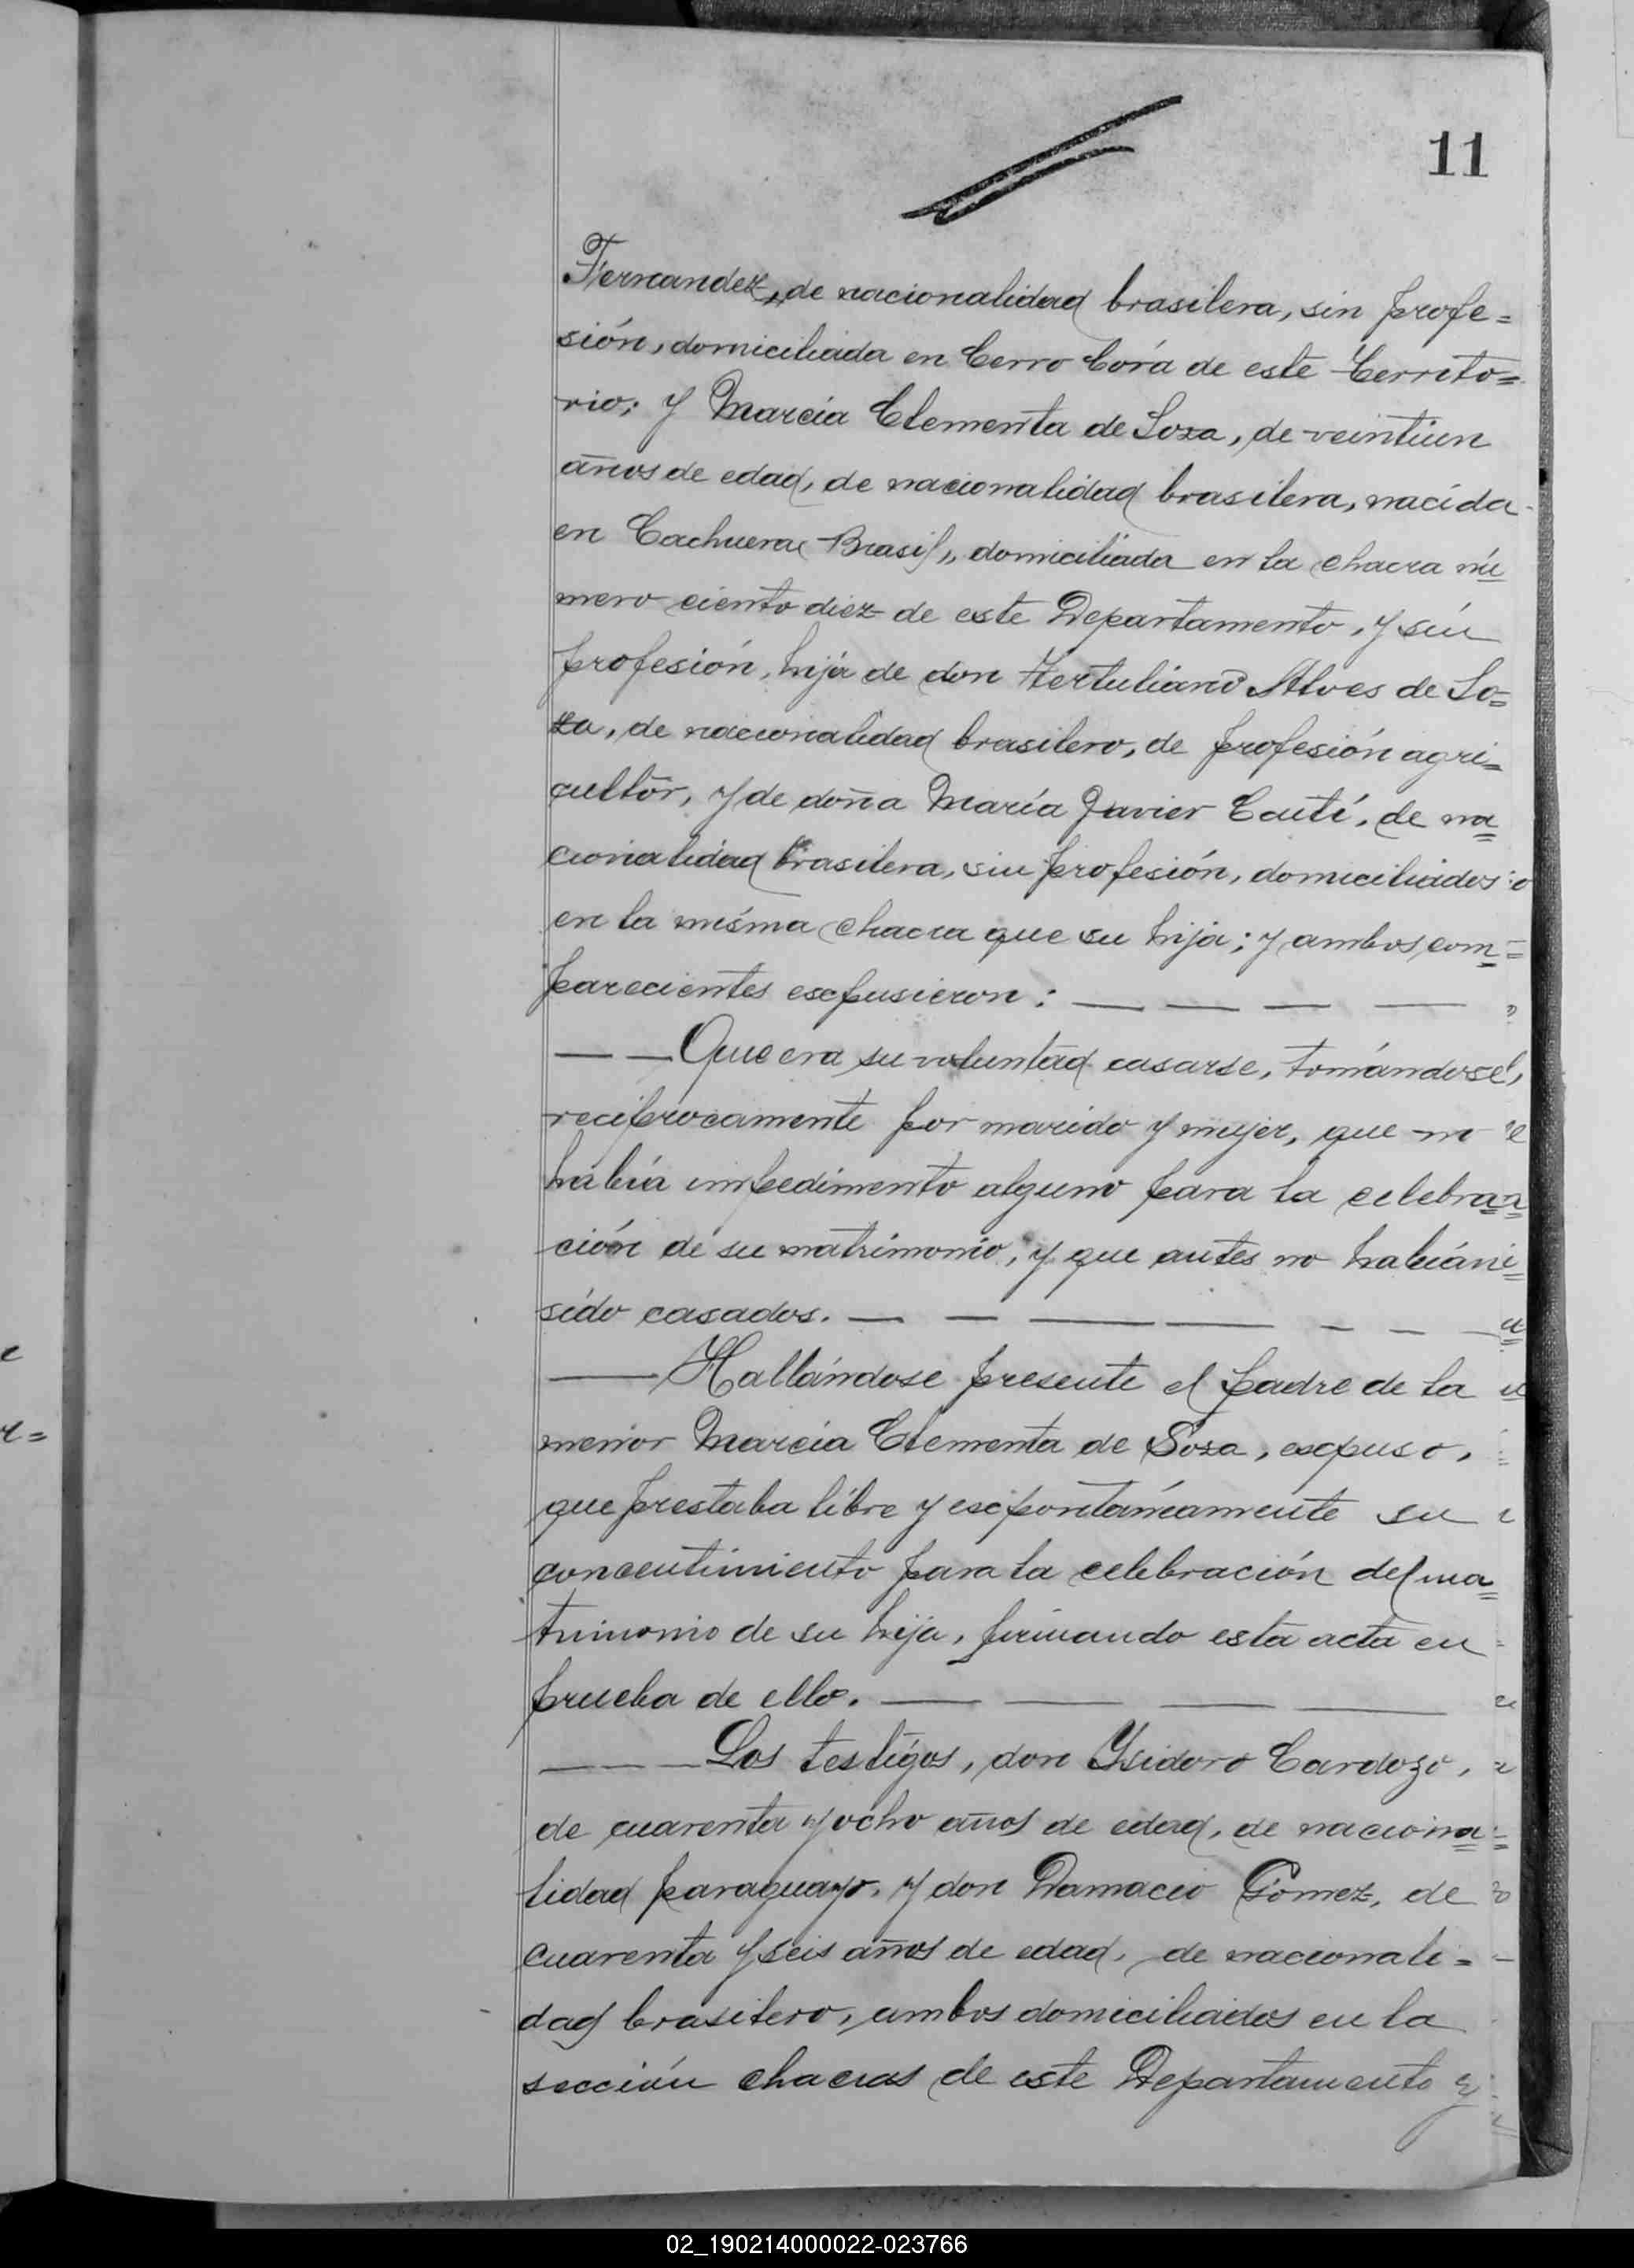 11
Fernandez, de nacionalidad brasilera, sin profe=
sión, domiciliada en Cerro Corá de este Territo=
rio; y Marcia Clementa de Soza, de veintiun
años de edad, de nacionalidad brasilera, nacida
en Cachuera (Brasil), domiciliada en la chacra nú
mero ciento diez de este Departamento, y sin
profesión, hija de don Tertuliano Alves de So=
za, de nacionalidad brasilero, de profesión agri=
cultor, y de doña María Javier Cautí, de na
cionalidad brasilera, sin profesión, domiciliados
en la misma chacra que su hija; y ambos com=
parecientes escpusieron: — — — —
— — Que era su voluntad casarse, tomándose,
reciprocamente por marido y mujer, que no
había impedimento alguno para la celebra=
ción de su matrimonio, y que antes no habían
sido casados. — — — — — — —
— Hallándose presente el padre de la
menor Marcia Clementa de Soza, escpuso,
que prestaba libre y escpontáneamente su
concentimiento para la celebración del ma=
trimonio de su hija, firmando esta acta en
prueba de ello. — — — —
— — — Los testigos, don Ysidoro Cardozo,
de cuarenta y ocho años de edad, de naciona=
lidad paraguayo, y don Damacio Gomez, de
cuarenta y seis años de edad, de nacionali=
dad brasilero, ambos domiciliados en la
sección chacras de este Departamento y
02_190214000022-023766